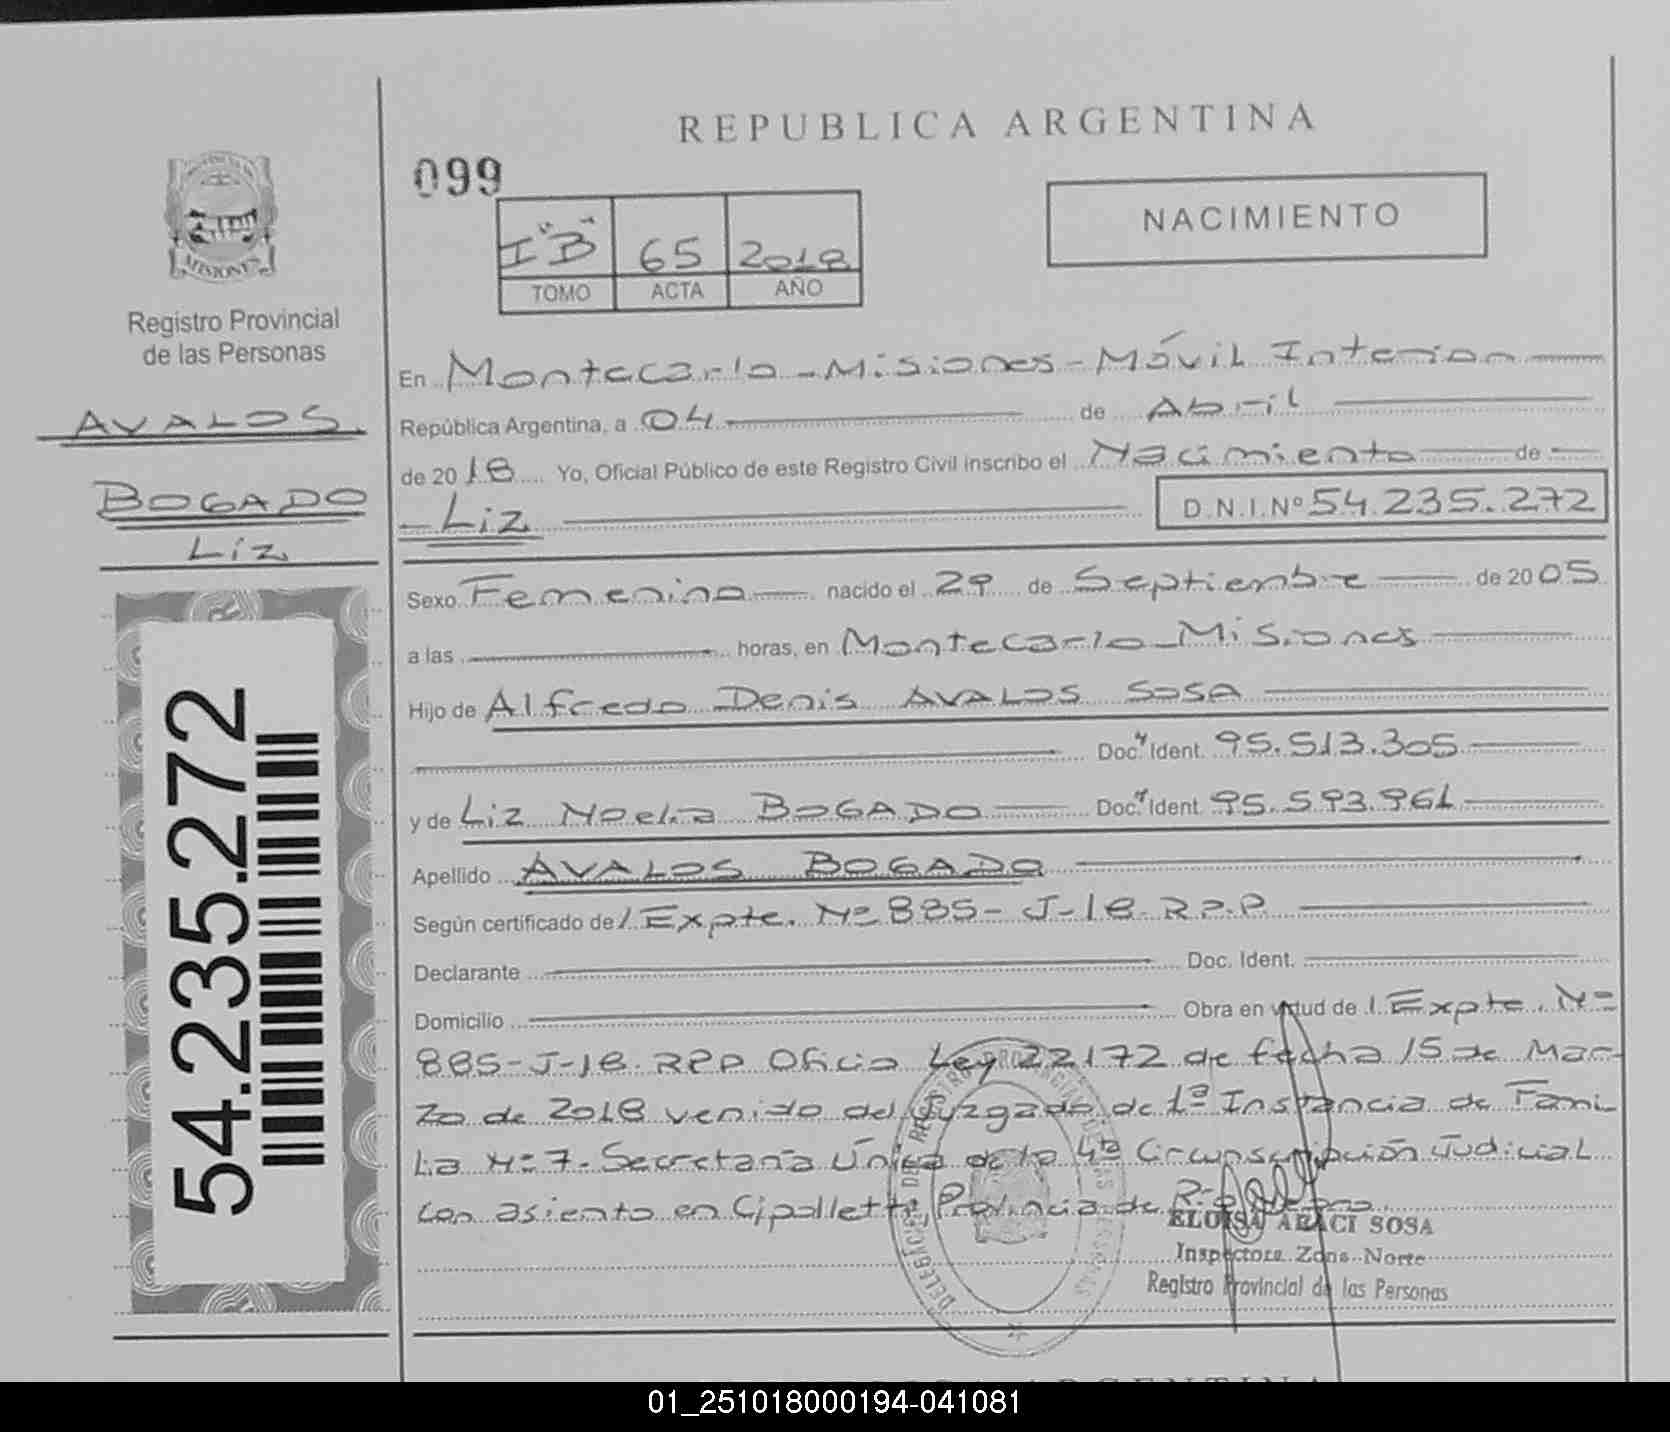 REPUBLICA ARGENTINA
099
NACIMIENTO
I "B" 65 2018
TOMO ACTA AÑO
MISIONES
Registro Provincial
de las Personas
AVALOS
BOGADO
Liz
54.235.272
En Montecarlo - Misiones - Móvil Interior
República Argentina, a 04 de Abril
de 2018 Yo, Oficial Público de este Registro Civil inscribo el Nacimiento de
Liz D.N.I.Nº 54.235.272
Sexo Femenino nacido el 29 de Septiembre de 2005
a las horas, en Montecarlo - Misiones
Hijo de Alfredo Denis AVALOS SOSA
Doc. Ident. 95.513.305
y de Liz Noelia BOGADO Doc. Ident. 95.593.961
Apellido AVALOS BOGADO
Según certificado de / Expte. Nº 885-J-18 RPP
Declarante Doc. Ident.
Domicilio Obra en virtud de / Expte. Nº
885-J-18 RPP Oficio Ley 22172 de fecha 15 de Mar-
zo de 2018 venido del Juzgado de 1ª Instancia de Fami-
lia Nº 7 - Secretaría Única de la 4ta Circunscripción Judicial
con asiento en Cipolletti Provincia de Río
ELOISA ARACI SOSA
Inspectora Zona Norte
Registro Provincial de las Personas
01_251018000194-041081